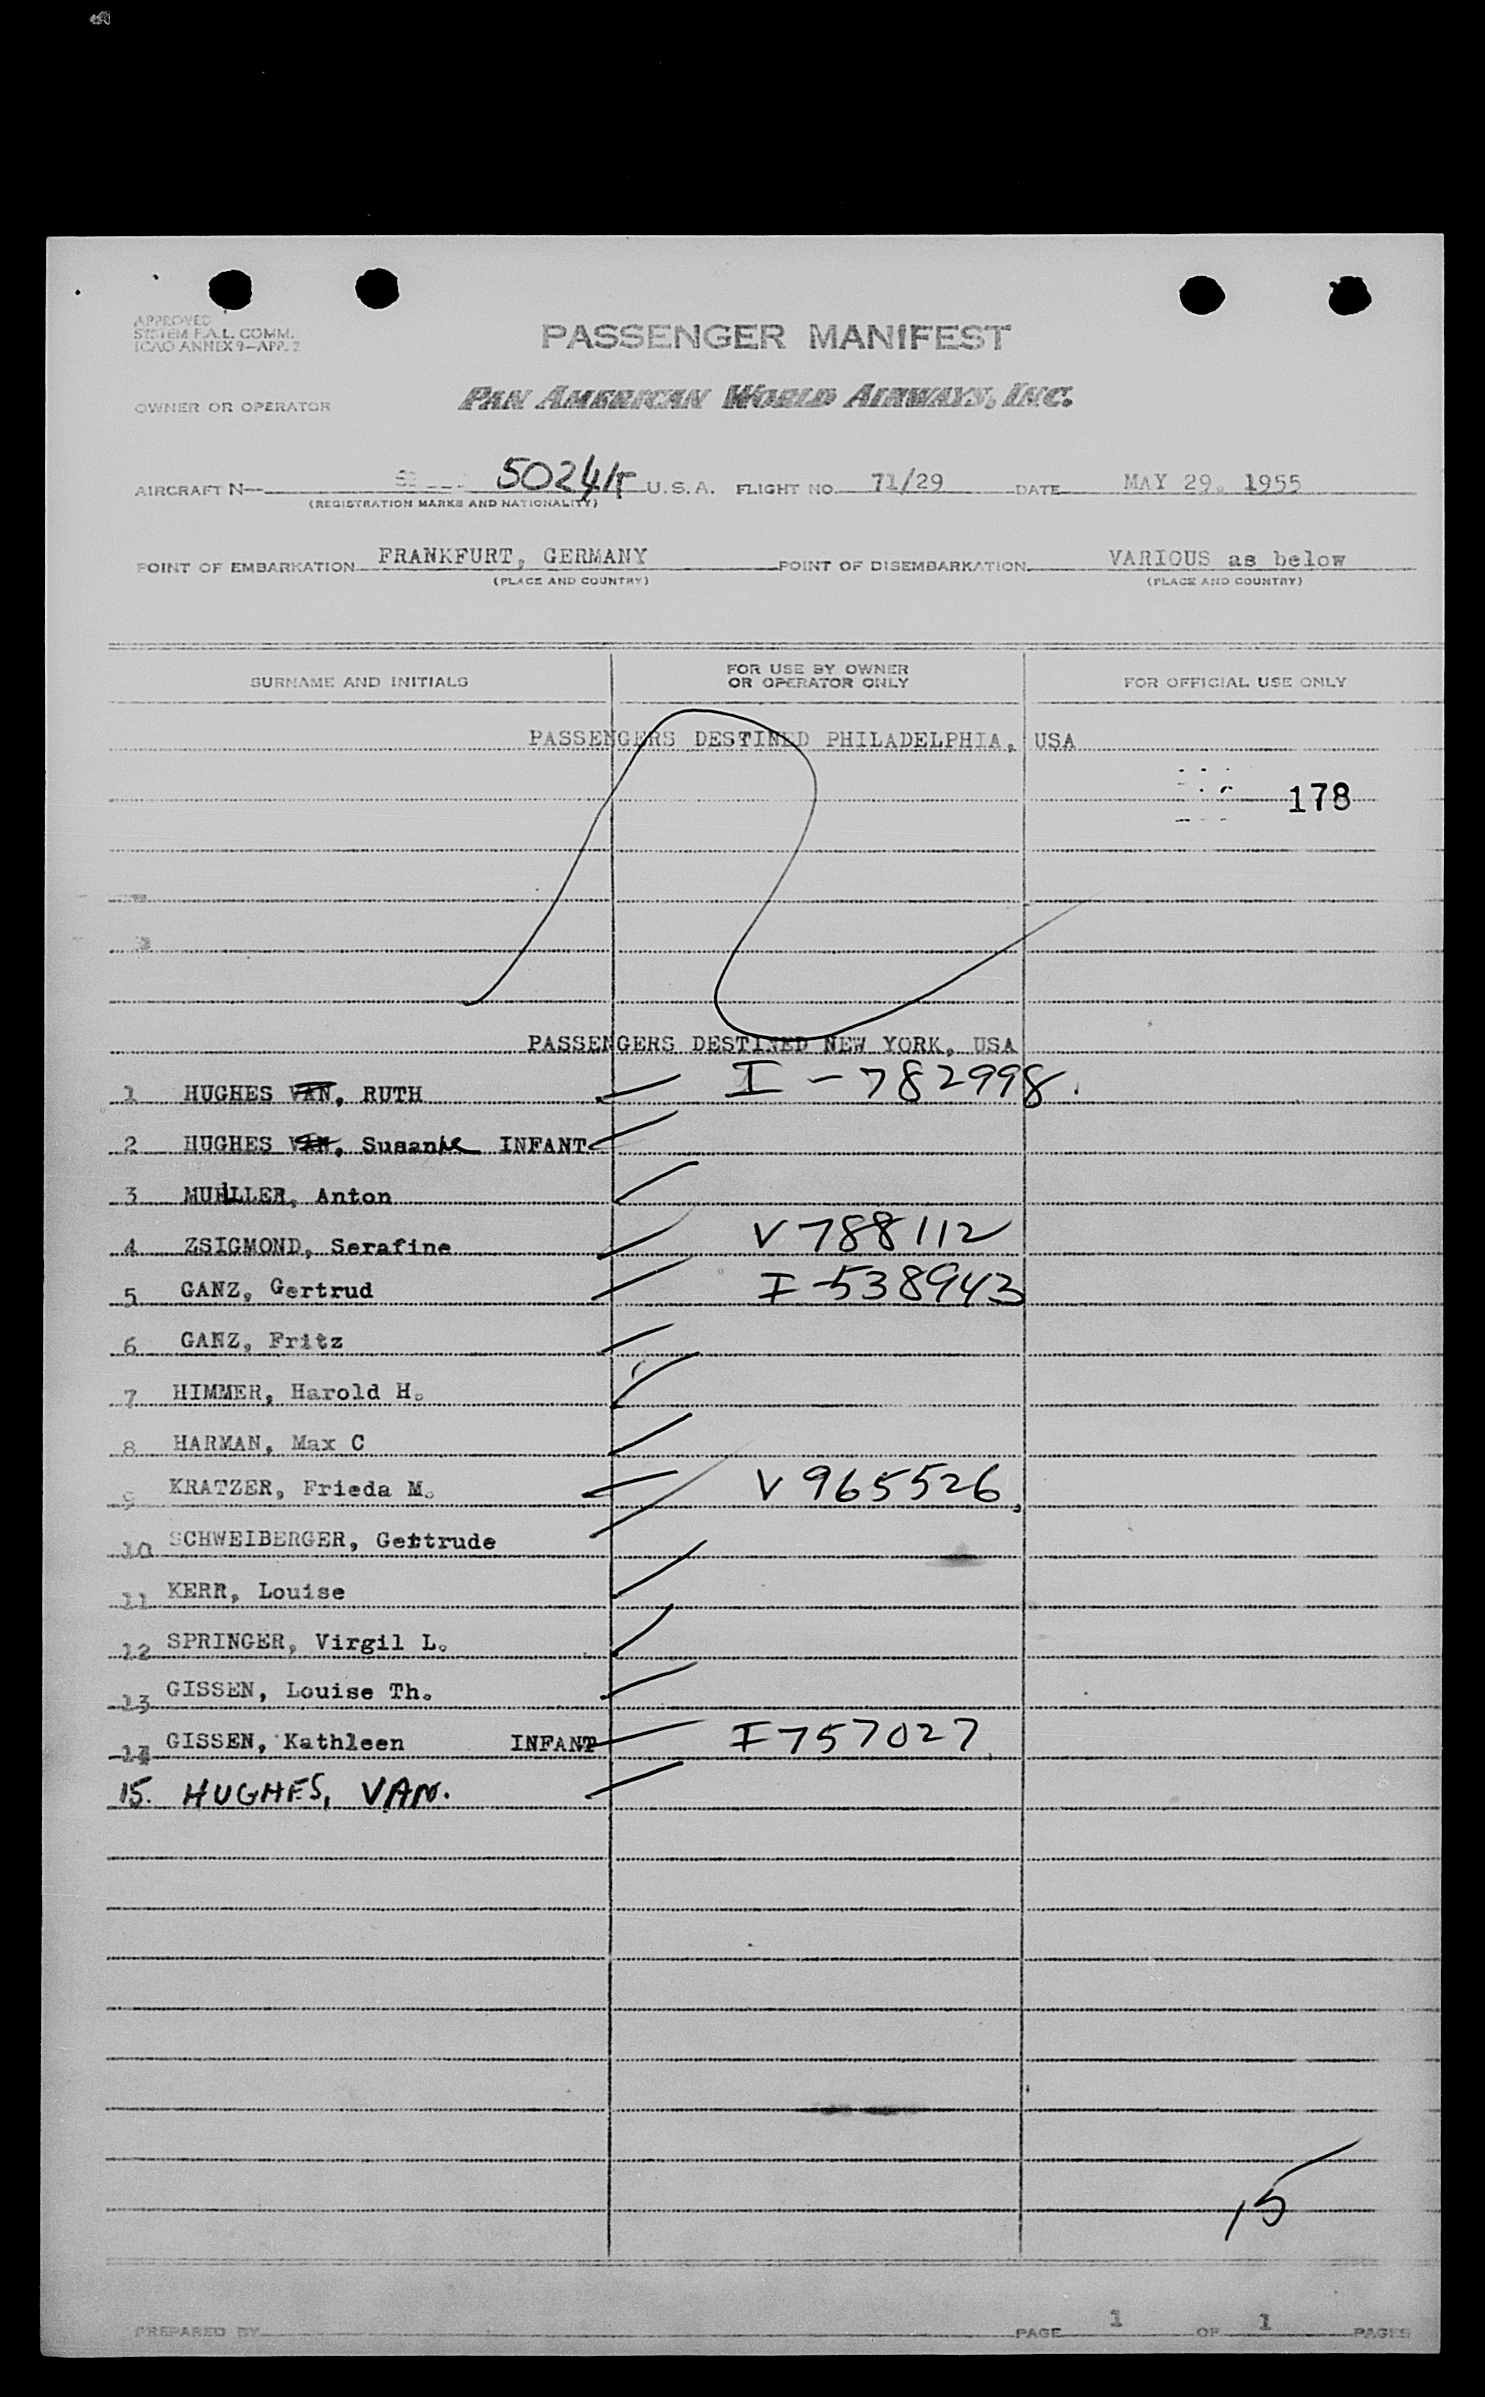 APPROVED
SYSTEM F.A.L. COMM.
ICAO ANNEX 9—APP. 2
PASSENGER MANIFEST
OWNER OR OPERATOR PAN AMERICAN WORLD AIRWAYS, INC.
AIRCRAFT N— 5024 U.S.A. FLIGHT NO. 71/29 DATE MAY 29, 1955
(REGISTRATION MARKS AND NATIONALITY)
POINT OF EMBARKATION FRANKFURT, GERMANY POINT OF DISEMBARKATION VARIOUS as below
(PLACE AND COUNTRY) (PLACE AND COUNTRY)
SURNAME AND INITIALS FOR USE BY OWNER OR OPERATOR ONLY FOR OFFICIAL USE ONLY
PASSENGERS DESTINED PHILADELPHIA, USA
178
PASSENGERS DESTINED NEW YORK, USA
1 HUGHES VAN, RUTH I - 782998.
2 HUGHES VAN, Susanne INFANT
3 MUELLER, Anton
4 ZSIGMOND, Serafine V 788112
5 GANZ, Gertrud I-538943
6 GANZ, Fritz
7 HIMMER, Harold H.
8 HARMAN, Max C
9 KRATZER, Frieda M. V 965526
10 SCHWEIBERGER, Gertrude
11 KERR, Louise
12 SPRINGER, Virgil L.
13 GISSEN, Louise Th.
14 GISSEN, Kathleen INFANT I 757027
15. HUGHES, VAN.
15
PREPARED BY PAGE 1 OF 1 PAGES